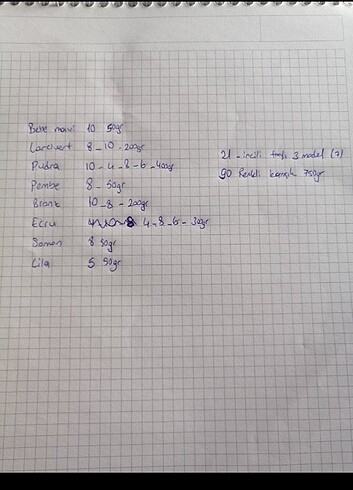 Bebe mavi 10 50gr
Lacivert 8 - 10 - 200gr
Pudra 10 - 4 - 8 - 6 - 400gr
Pembe 8 - 50gr
Bronz 10 - 8 - 200gr
Ecru 4 - 8 - 6 - 300gr
Somon 8 50gr
Lila 5 50gr
21 - incili 3 model (7)
90 Renkli karışık 750gr